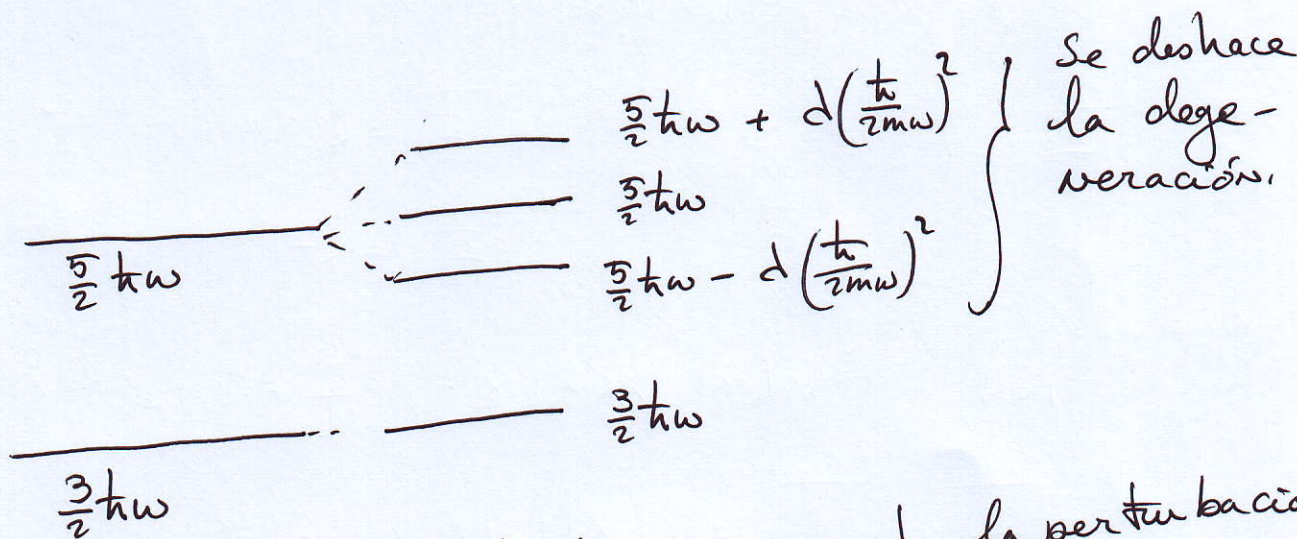 5/2 ħω + λ(ħ/2mω)²
5/2 ħω
5/2 ħω - λ(ħ/2mω)²
Se deshace
la dege-
neración.
5/2 ħω
3/2 ħω
3/2 ħω
la perturbació